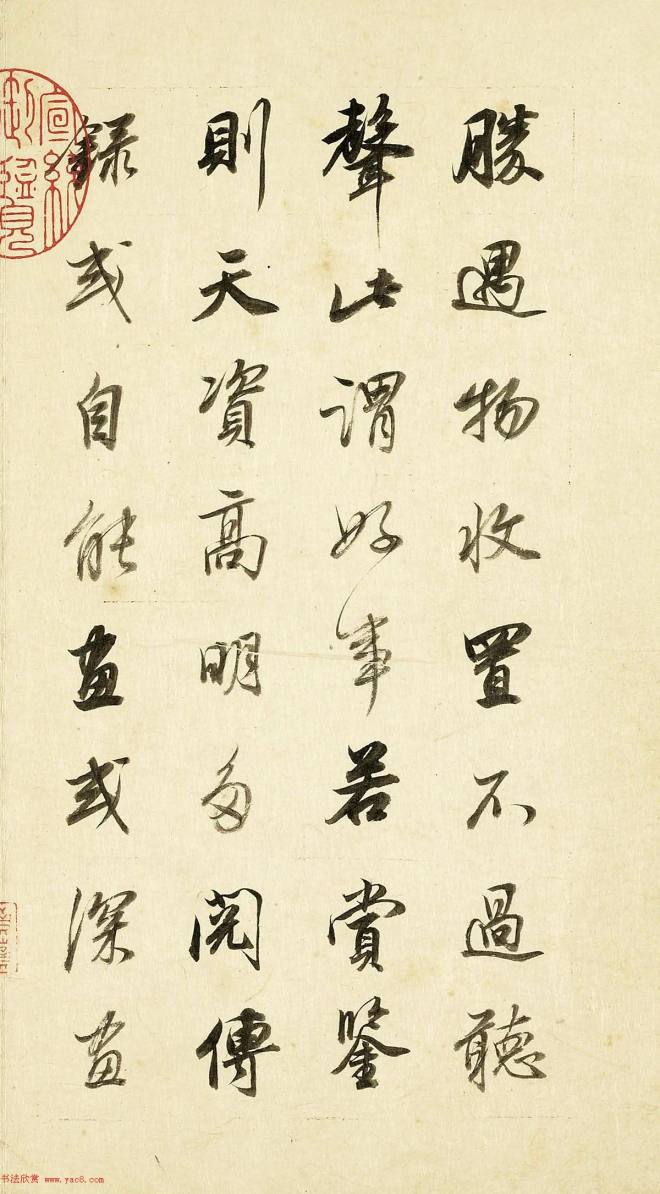 勝遇物收置不過聽
聲此謂好事若賞鑒
則天資高明多閱傳
錄或自能畫或深畫
宣統御覽
书法欣赏 www.yac8.com